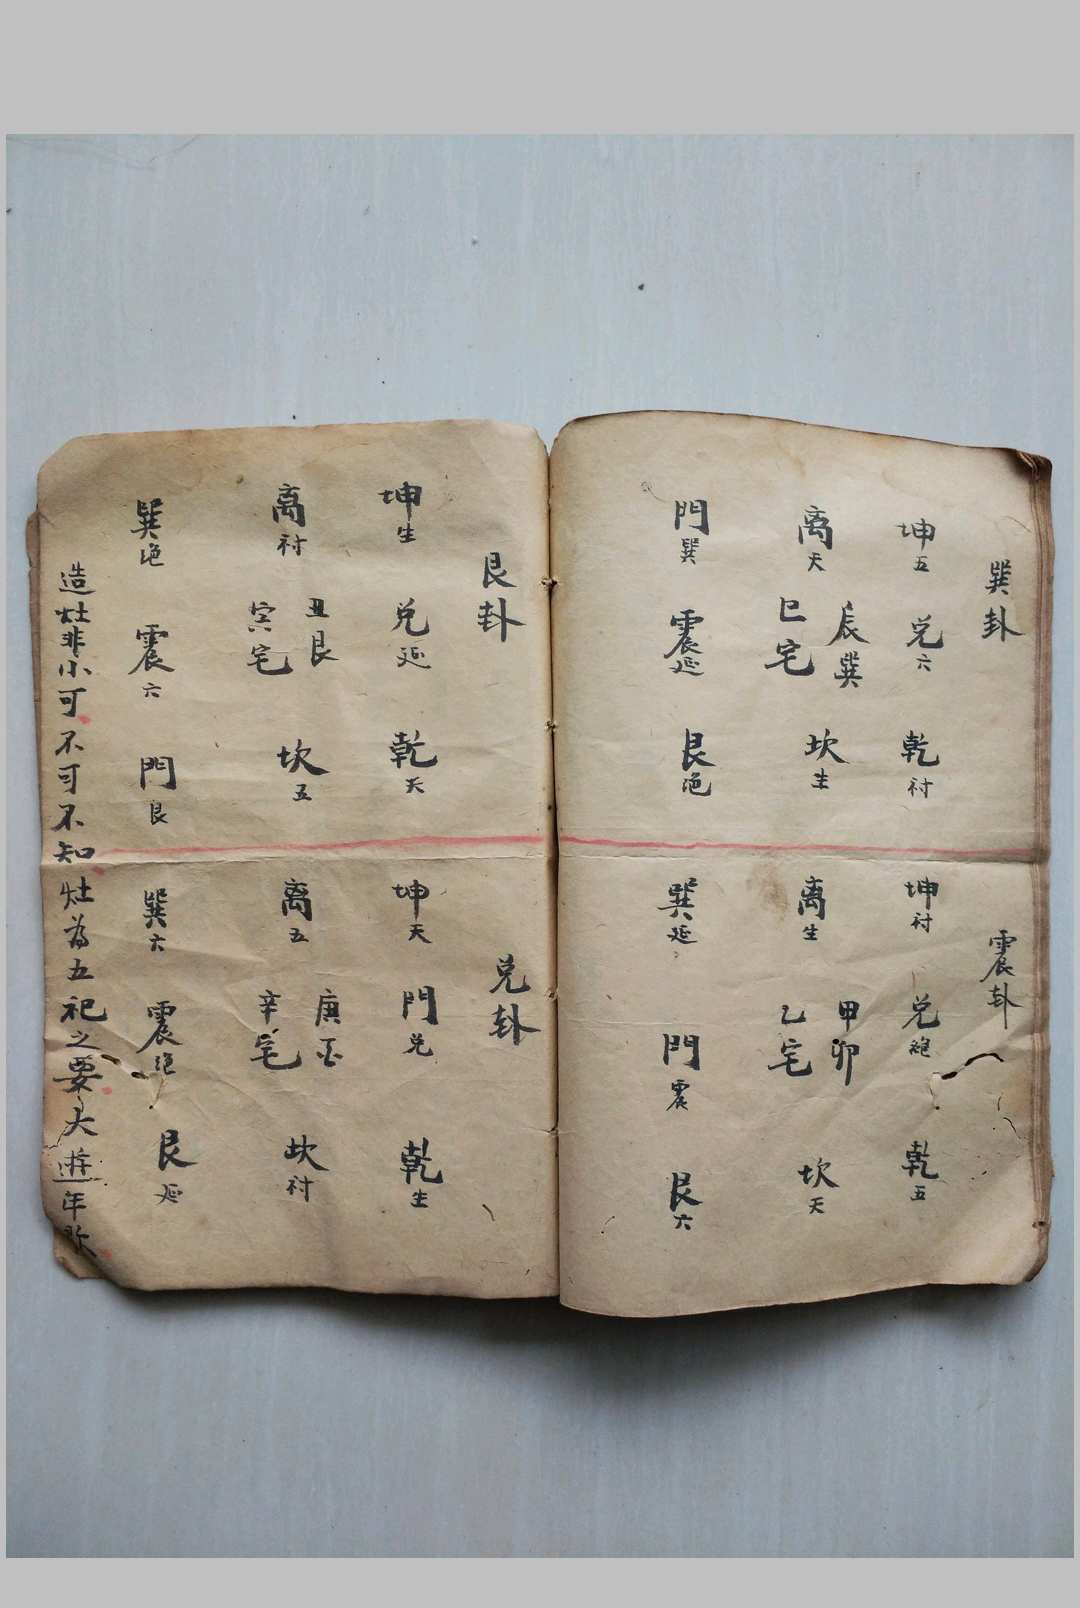 巽卦
坤五 兑六 乾衬
辰巽
巳宅
离天 坎生
門巽 震延 艮绝
震卦
坤衬 兑绝 乾五
甲卯
乙宅
离生 坎天
巽延 門震 艮六
艮卦
坤生 兑延 乾天
丑艮
寅宅
离衬 坎五
巽绝 震六 門艮
兑卦
坤天 門兑 乾生
庚酉
辛宅
离五 坎衬
巽六 震绝 艮延
造灶非小可不可不知灶為五祀之要大遊年歌